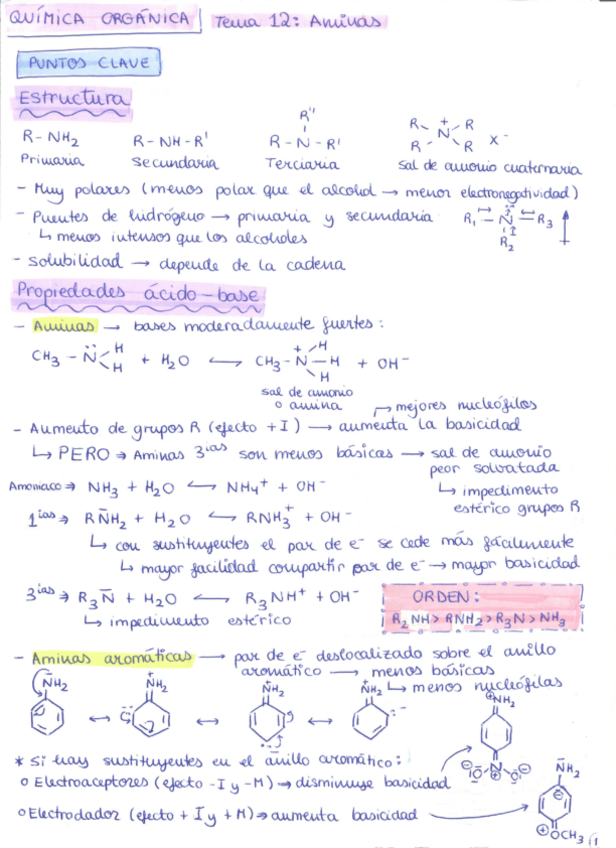 QUÍMICA ORGÁNICA Tema 12: Aminas
PUNTOS CLAVE
Estructura
R-NH₂ R-NH-R' R''-N-R' R R N⁺ R R X⁻
R
Primaria Secundaria Terciaria Sal de amonio cuaternaria
- Muy polares (menos polar que el alcohol → menor electronegatividad)
- Puentes de hidrógeno → primaria y secundaria R₁ N R₃
↳ menos intensos que los alcoholes R₂
- Solubilidad → depende de la cadena
Propiedades ácido-base
- Aminas → bases moderadamente fuertes:
CH₃-N̈ H H + H₂O ⟷ CH₃-N⁺ H H H + OH⁻
sal de amonio
o amina → mejores nucleófilos
- Aumento de grupos R (efecto +I) → aumenta la basicidad
↳ PERO ⇒ Aminas 3ias son menos básicas → sal de amonio
peor solvatada
Amoniaco ⇒ NH₃ + H₂O ⟷ NH₄⁺ + OH⁻ ↳ impedimento
estérico grupos R
1ias ⇒ RN̄H₂ + H₂O ⟷ RNH₃⁺ + OH⁻
↳ con sustituyentes el par de e⁻ se cede más fácilmente
↳ mayor facilidad compartir par de e⁻ → mayor basicidad
3ias ⇒ R₃N̄ + H₂O ⟷ R₃NH⁺ + OH⁻ ORDEN:
↳ impedimento estérico R₂NH > RNH₂ > R₃N > NH₃
- Aminas aromáticas → par de e⁻ deslocalizado sobre el anillo
aromático → menos básicas
N̄H₂ ⁺NH₂ ⁺NH₂ ⁺NH₂ ↳ menos nucleófilas
⊕NH₂
* Si hay sustituyentes en el anillo aromático:
o Electroaceptores (efecto -I y -M) → disminuye basicidad ⊖O N⊕ O⊖ N̄H₂
o Electrodador (efecto +I y +M) ⇒ aumenta basicidad ⊖
⊕OCH₃ 1